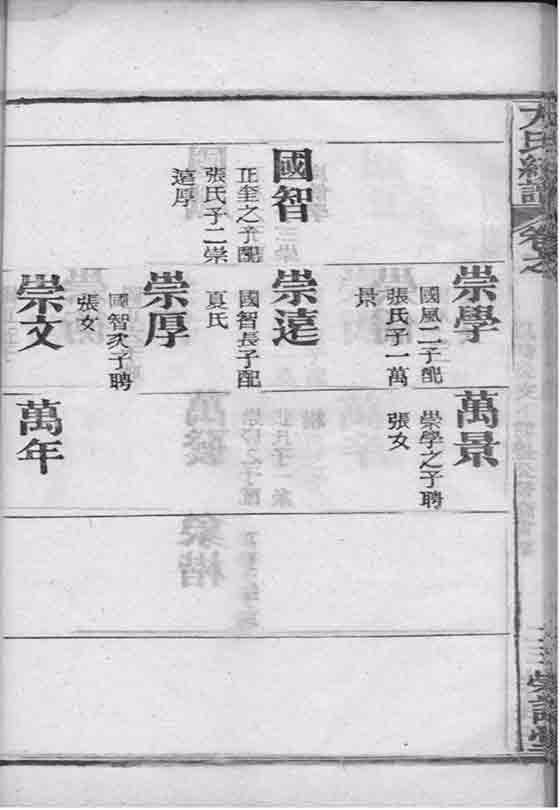 國智
正奎之子配
張氏子二崇
遠厚
崇學
國風二子配
張氏子一萬
景
崇遠
國智長子配
真氏
崇厚
國智次子聘
張女
崇文
萬景
崇學之子聘
張女
萬年